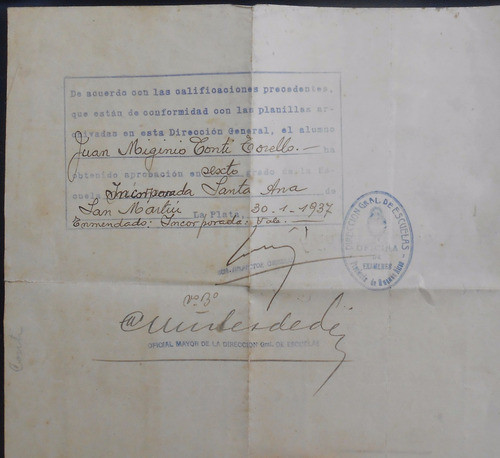 De acuerdo con las calificaciones precedentes,
que están de conformidad con las planillas ar-
chivadas en esta Dirección General, el alumno
Juan Miginio Conti Torello.- ha
obtenido aprobación en sexto grado de la Es-
cuela Incorporada Santa Ana
San Martín de
La Plata, 30-1-1937
Enmendado: Incorporada: Vale.
DIRECCION GRAL. DE ESCUELAS
OFICINA
DE
EXAMENES
Provincia de Buenos Aires
VºBº
OFICIAL MAYOR DE LA DIRECCION Gral. DE ESCUELAS